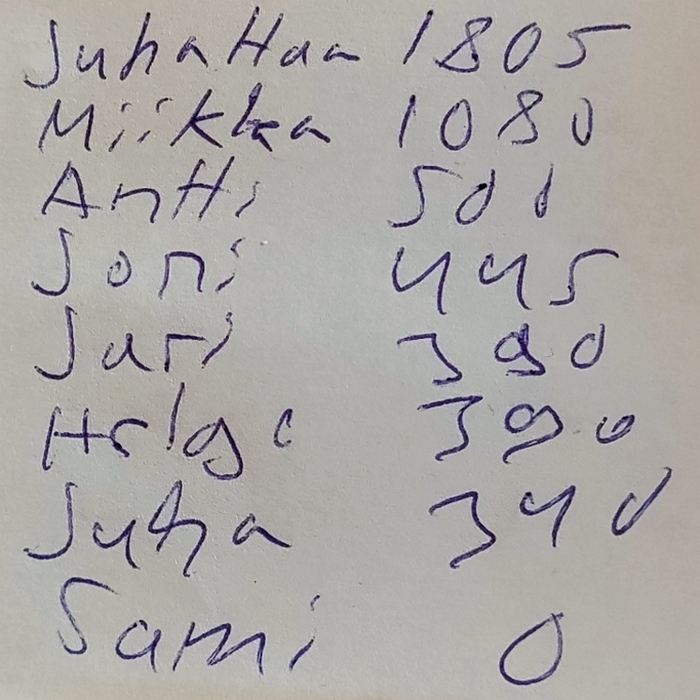 JuhaHaa 1805
Miikka 1080
Antti 500
Joni 445
Jari 390
390
Juha 340
Sami 0